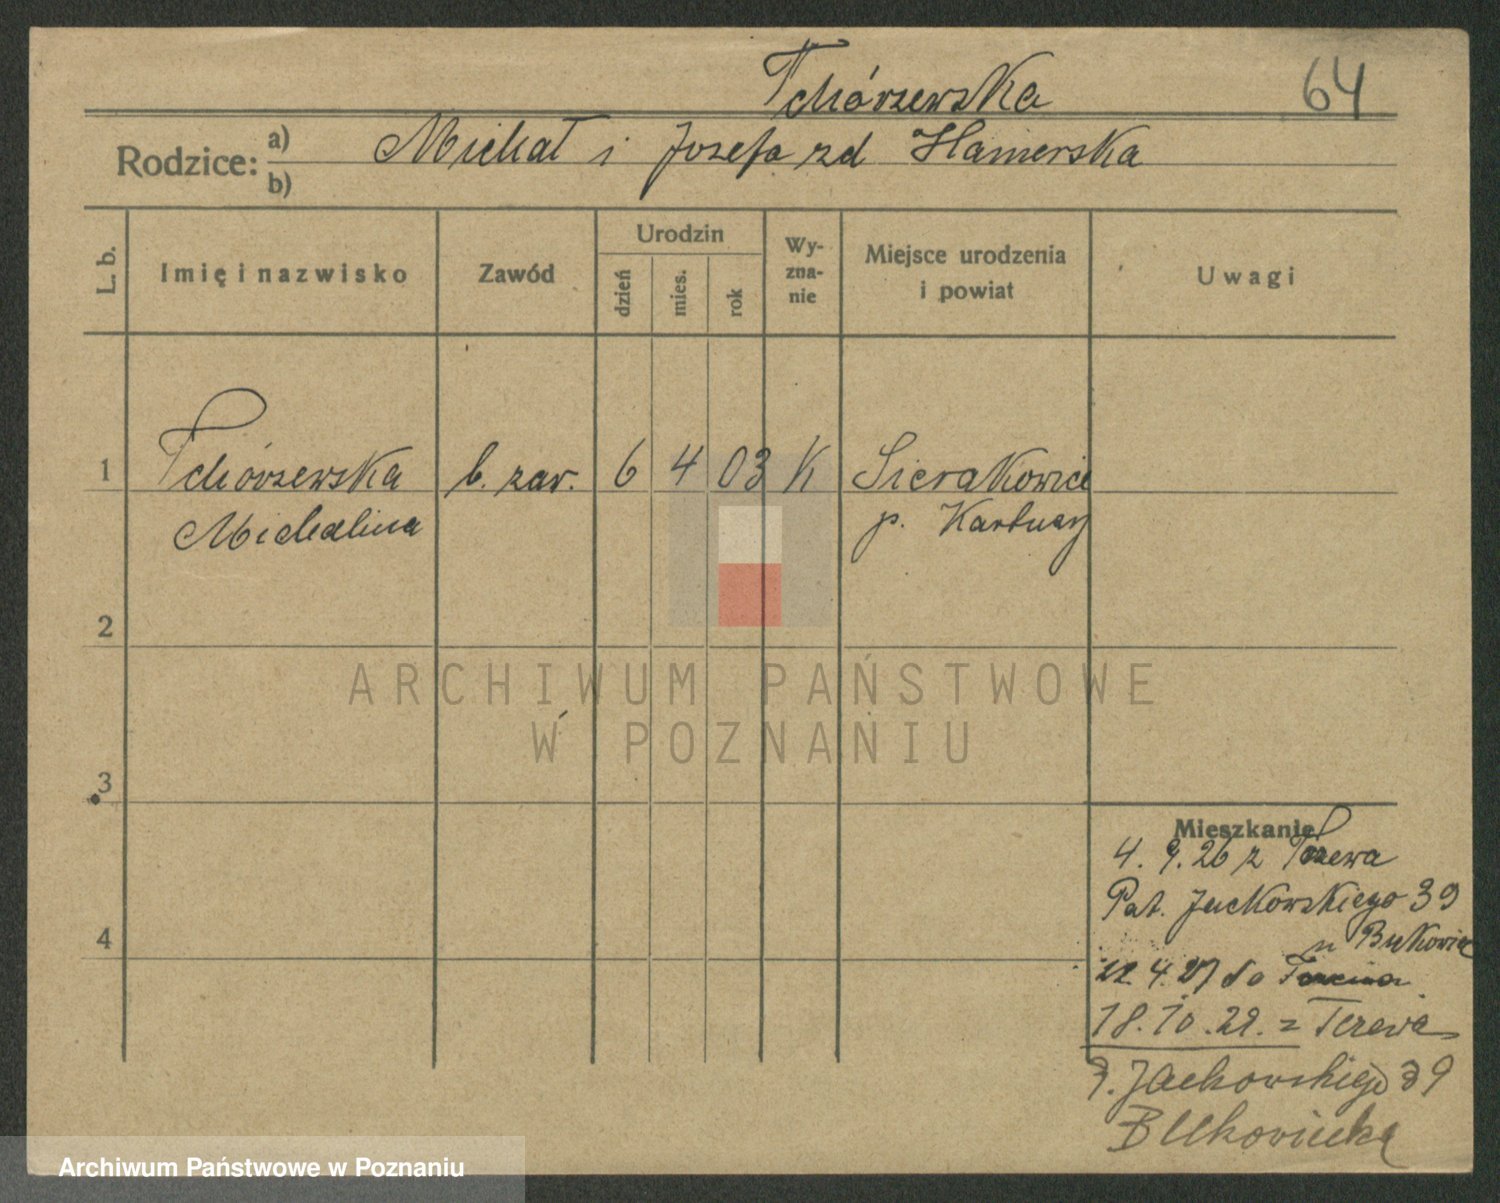 Tchórzewska 64
Rodzice: a) Michał i Jozefa zd Hamerska
b)
L. b. Imię i nazwisko Zawód Urodzin dzień mies. rok Wy-zna-nie Miejsce urodzenia i powiat Uwagi
1 Tchórzewska b. zaw. 6 4 03 K Sierakowice
Michalina p. Kartuzy
2
ARCHIWUM PAŃSTWOWE
W POZNANIU
3
Mieszkanie
4. 9. 26 z Tczewa
Pat. Jackowskiego 39
4 u Bukowie
22. 4. 27 do
18. 10. 29. z Tczewa
P. Jackowskiego 39
Bukowiecka
Archiwum Państwowe w Poznaniu